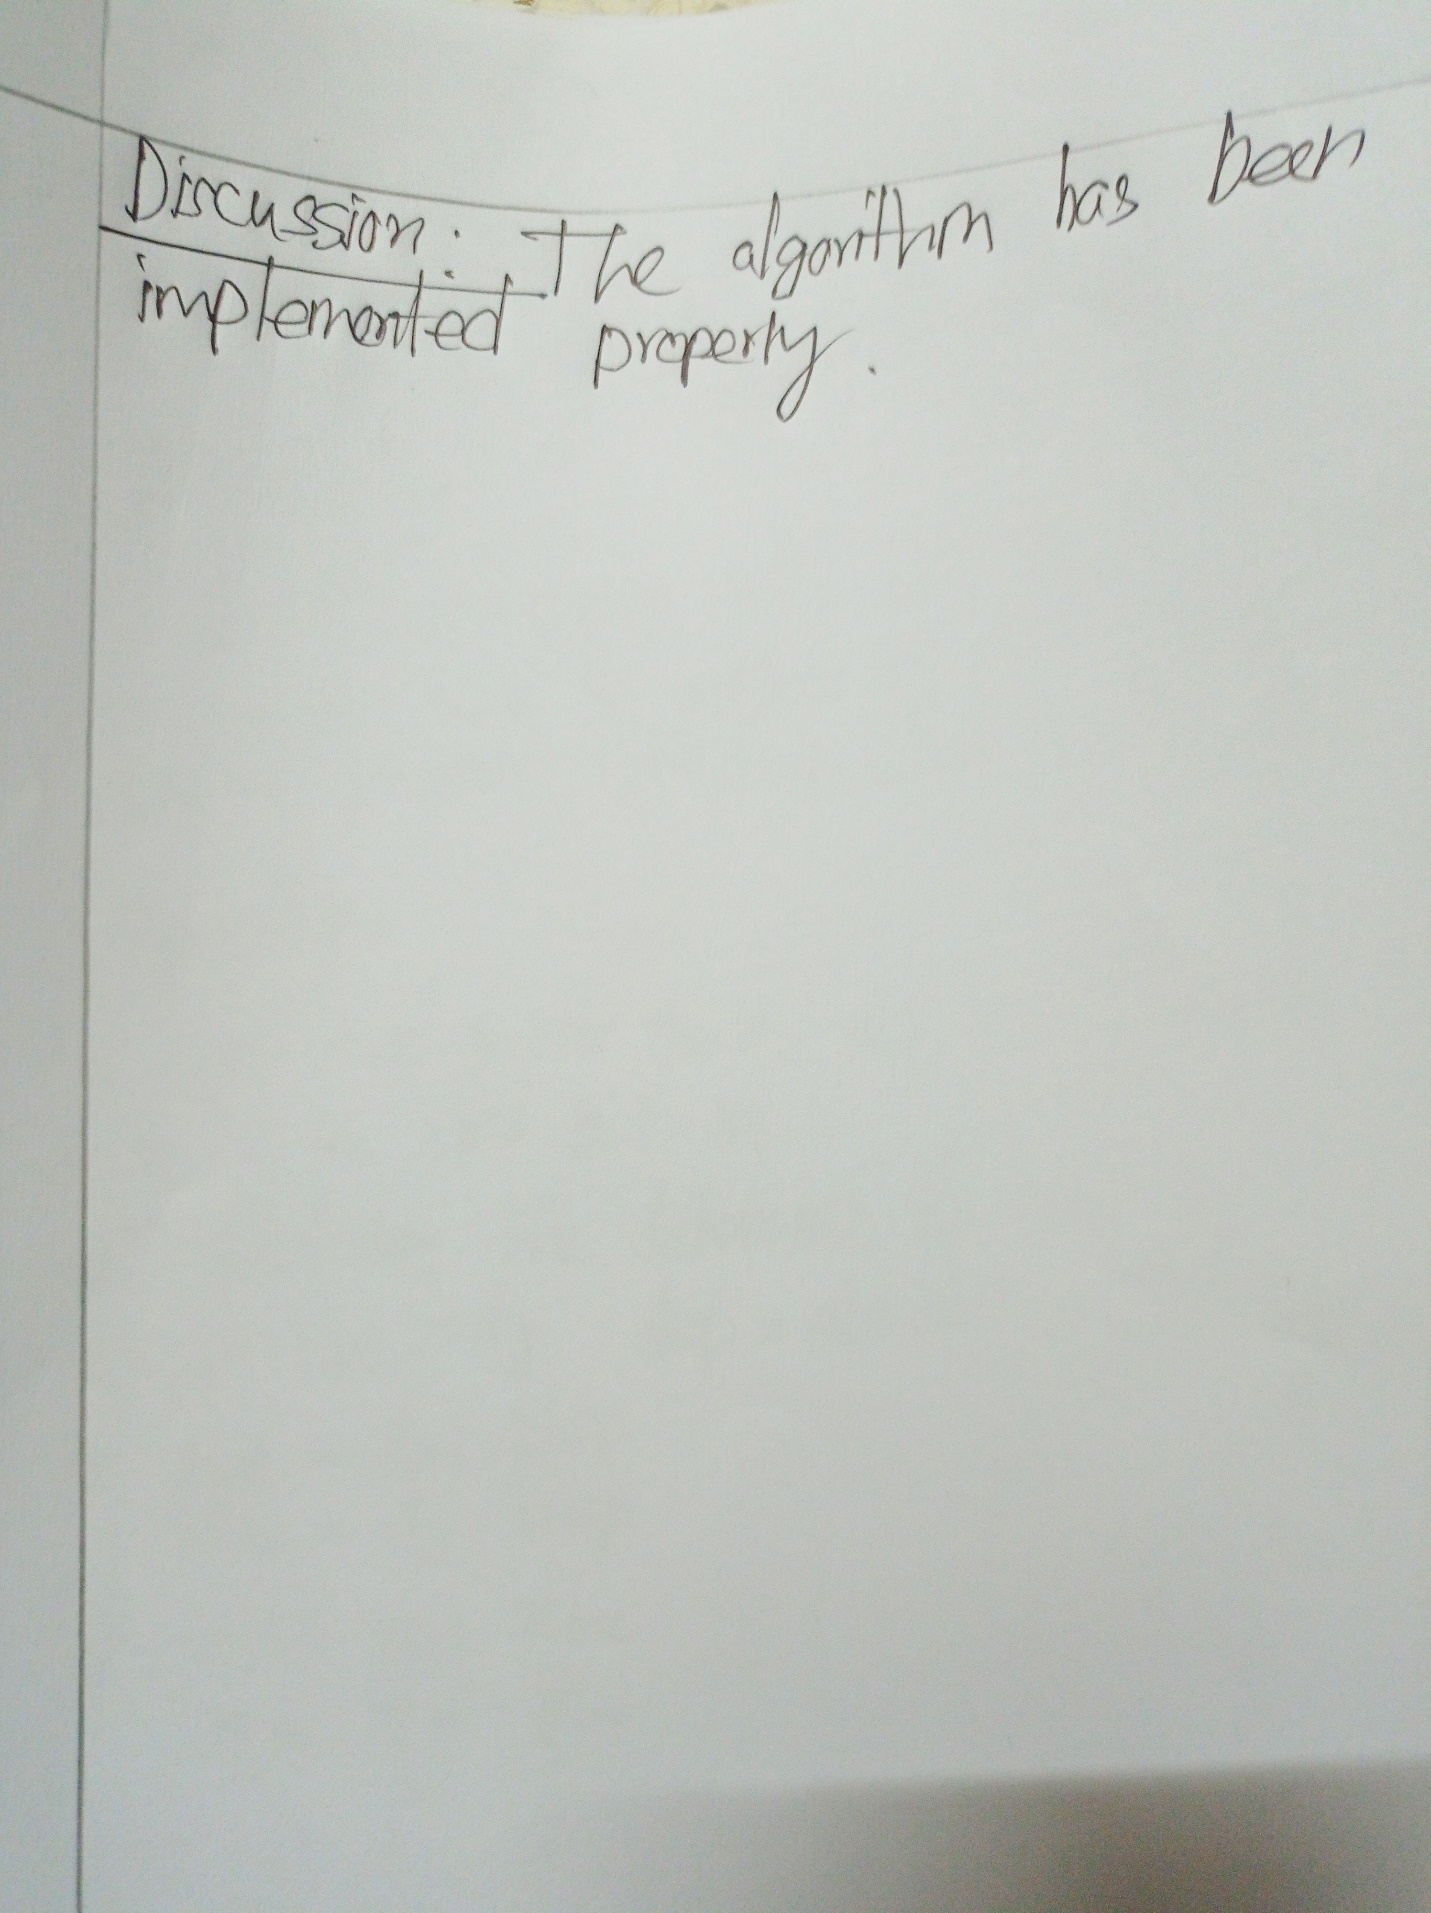 Discussion: The algorithm has been
implemented properly.